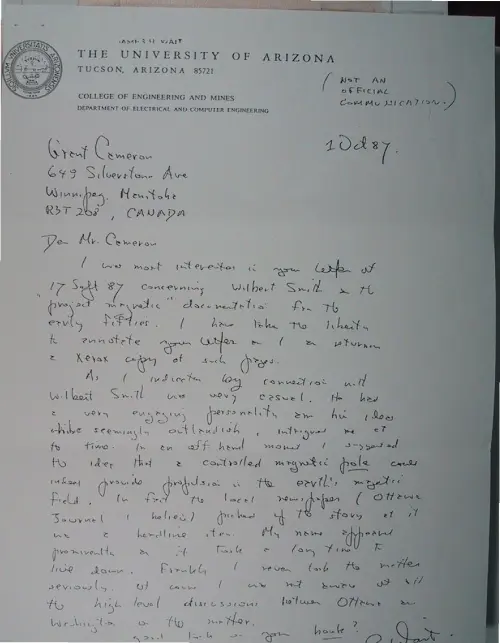 JAMES R WAIT
THE UNIVERSITY OF ARIZONA
TUCSON, ARIZONA 85721
COLLEGE OF ENGINEERING AND MINES
DEPARTMENT OF ELECTRICAL AND COMPUTER ENGINEERING
( NOT AN
OFFICIAL
COMMUNICATION. )
1 Oct 87.
Grant Cameron
649 Silverstone Ave
Winnipeg, Manitoba
R3T 2V8, CANADA
Dear Mr. Cameron
I was most interested in your letter of
17 Sept 87 concerning Wilbert Smith & the
"project magnetic" documentation from the
early fifties. I have taken the liberty
to annotate your letter and I am returning
a Xerox copy of such pages.
As I indicated my connection with
Wilbert Smith was very casual. He had
a very engaging personality and his ideas
while seemingly outlandish, intrigued me at
the time. In an off hand moment I suggested
the idea that a controlled magnetic pole could
indeed provide propulsion in the earth's magnetic
field. In fact the local newspaper (Ottawa
Journal I believe) picked up the story and it
was a headline item. My name appeared
prominently and it took a long time to
live down. Frankly I never took the matter
seriously. Of course I was not aware of
the high level discussions between Ottawa and
Washington on the matter.
good luck on your